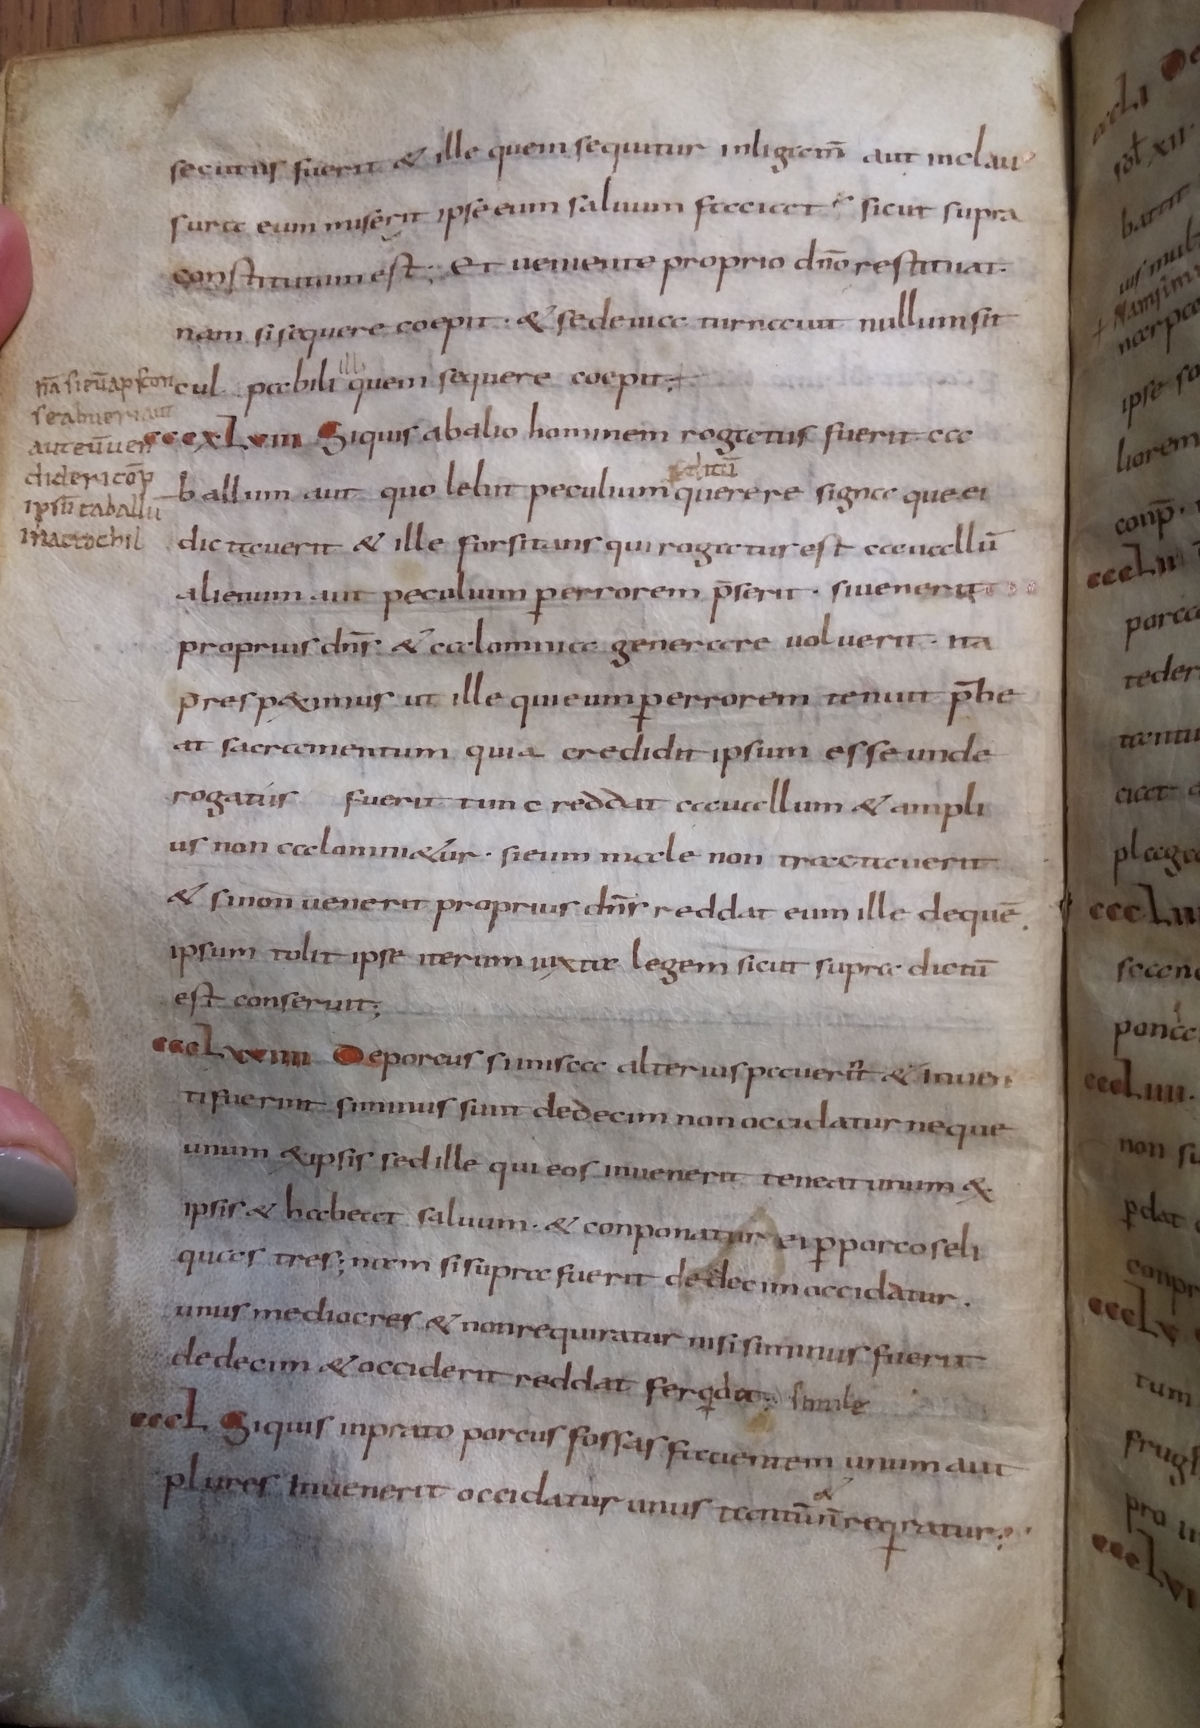 secutus fuerit & ille quem sequitur inligam̄ aut inclau
sura eum miserit ipse eum saluum faciat sicut supra
constitutum est; Et ueniente proprio dn̄o restituat·
nam si sequere coepit· & sedeuica turnauit nullum sit
cul pabili ill quem sequere coepit;
nā si eū ap
aut eū uen
dideri cōp
ipsū caballū
cccxLviii Siquis abalio hominem rogatus fuerit ca
ballum aut quolebit peculium querere signa que ei
dictauerit & ille forsitans qui rogatus est cauallū
alienum aut peculium ꝑerrorem p̄serit· siuenerit
proprius dn̄s & calomnia generare uoluerit· ita
prespeximus ut ille qui eum ꝑerrorem tenuit p̄be
at sacramentum quia credidit ipsum esse unde
rogatus fuerit tunc reddat cauallum & ampli
us non calomni&ur· si eum male non tractauerit
& si non uenerit proprius dn̄s reddat eum ille dequē
ipsum tolit ipse iterum iuxta legem sicut supra dictū
est conseruit;
cccLxviiii Deporcus si in isca alterius pauerit & inuen
ti fuerint si minus sunt dedecim non occidatur neque
unum &ipsis sed ille qui eos inuenerit teneat unum &
ipsis & habeat saluum· & conponatur ei ꝑ porco seli
quas tres; nam si supra fuerit dedecim occidatur·
unus mediocres & non requiratur nisi si minus fuerit
dedecim & occiderit reddat simile
cccL Siquis in prato porcus fossas facientem unum aut
plures inuenerit occidatur unus tantū & n̄ reqratur;